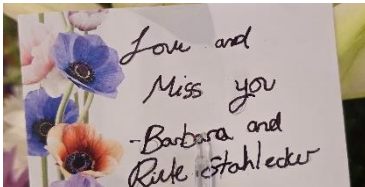 Love and
Miss you
-Barbara and
Stahlecker